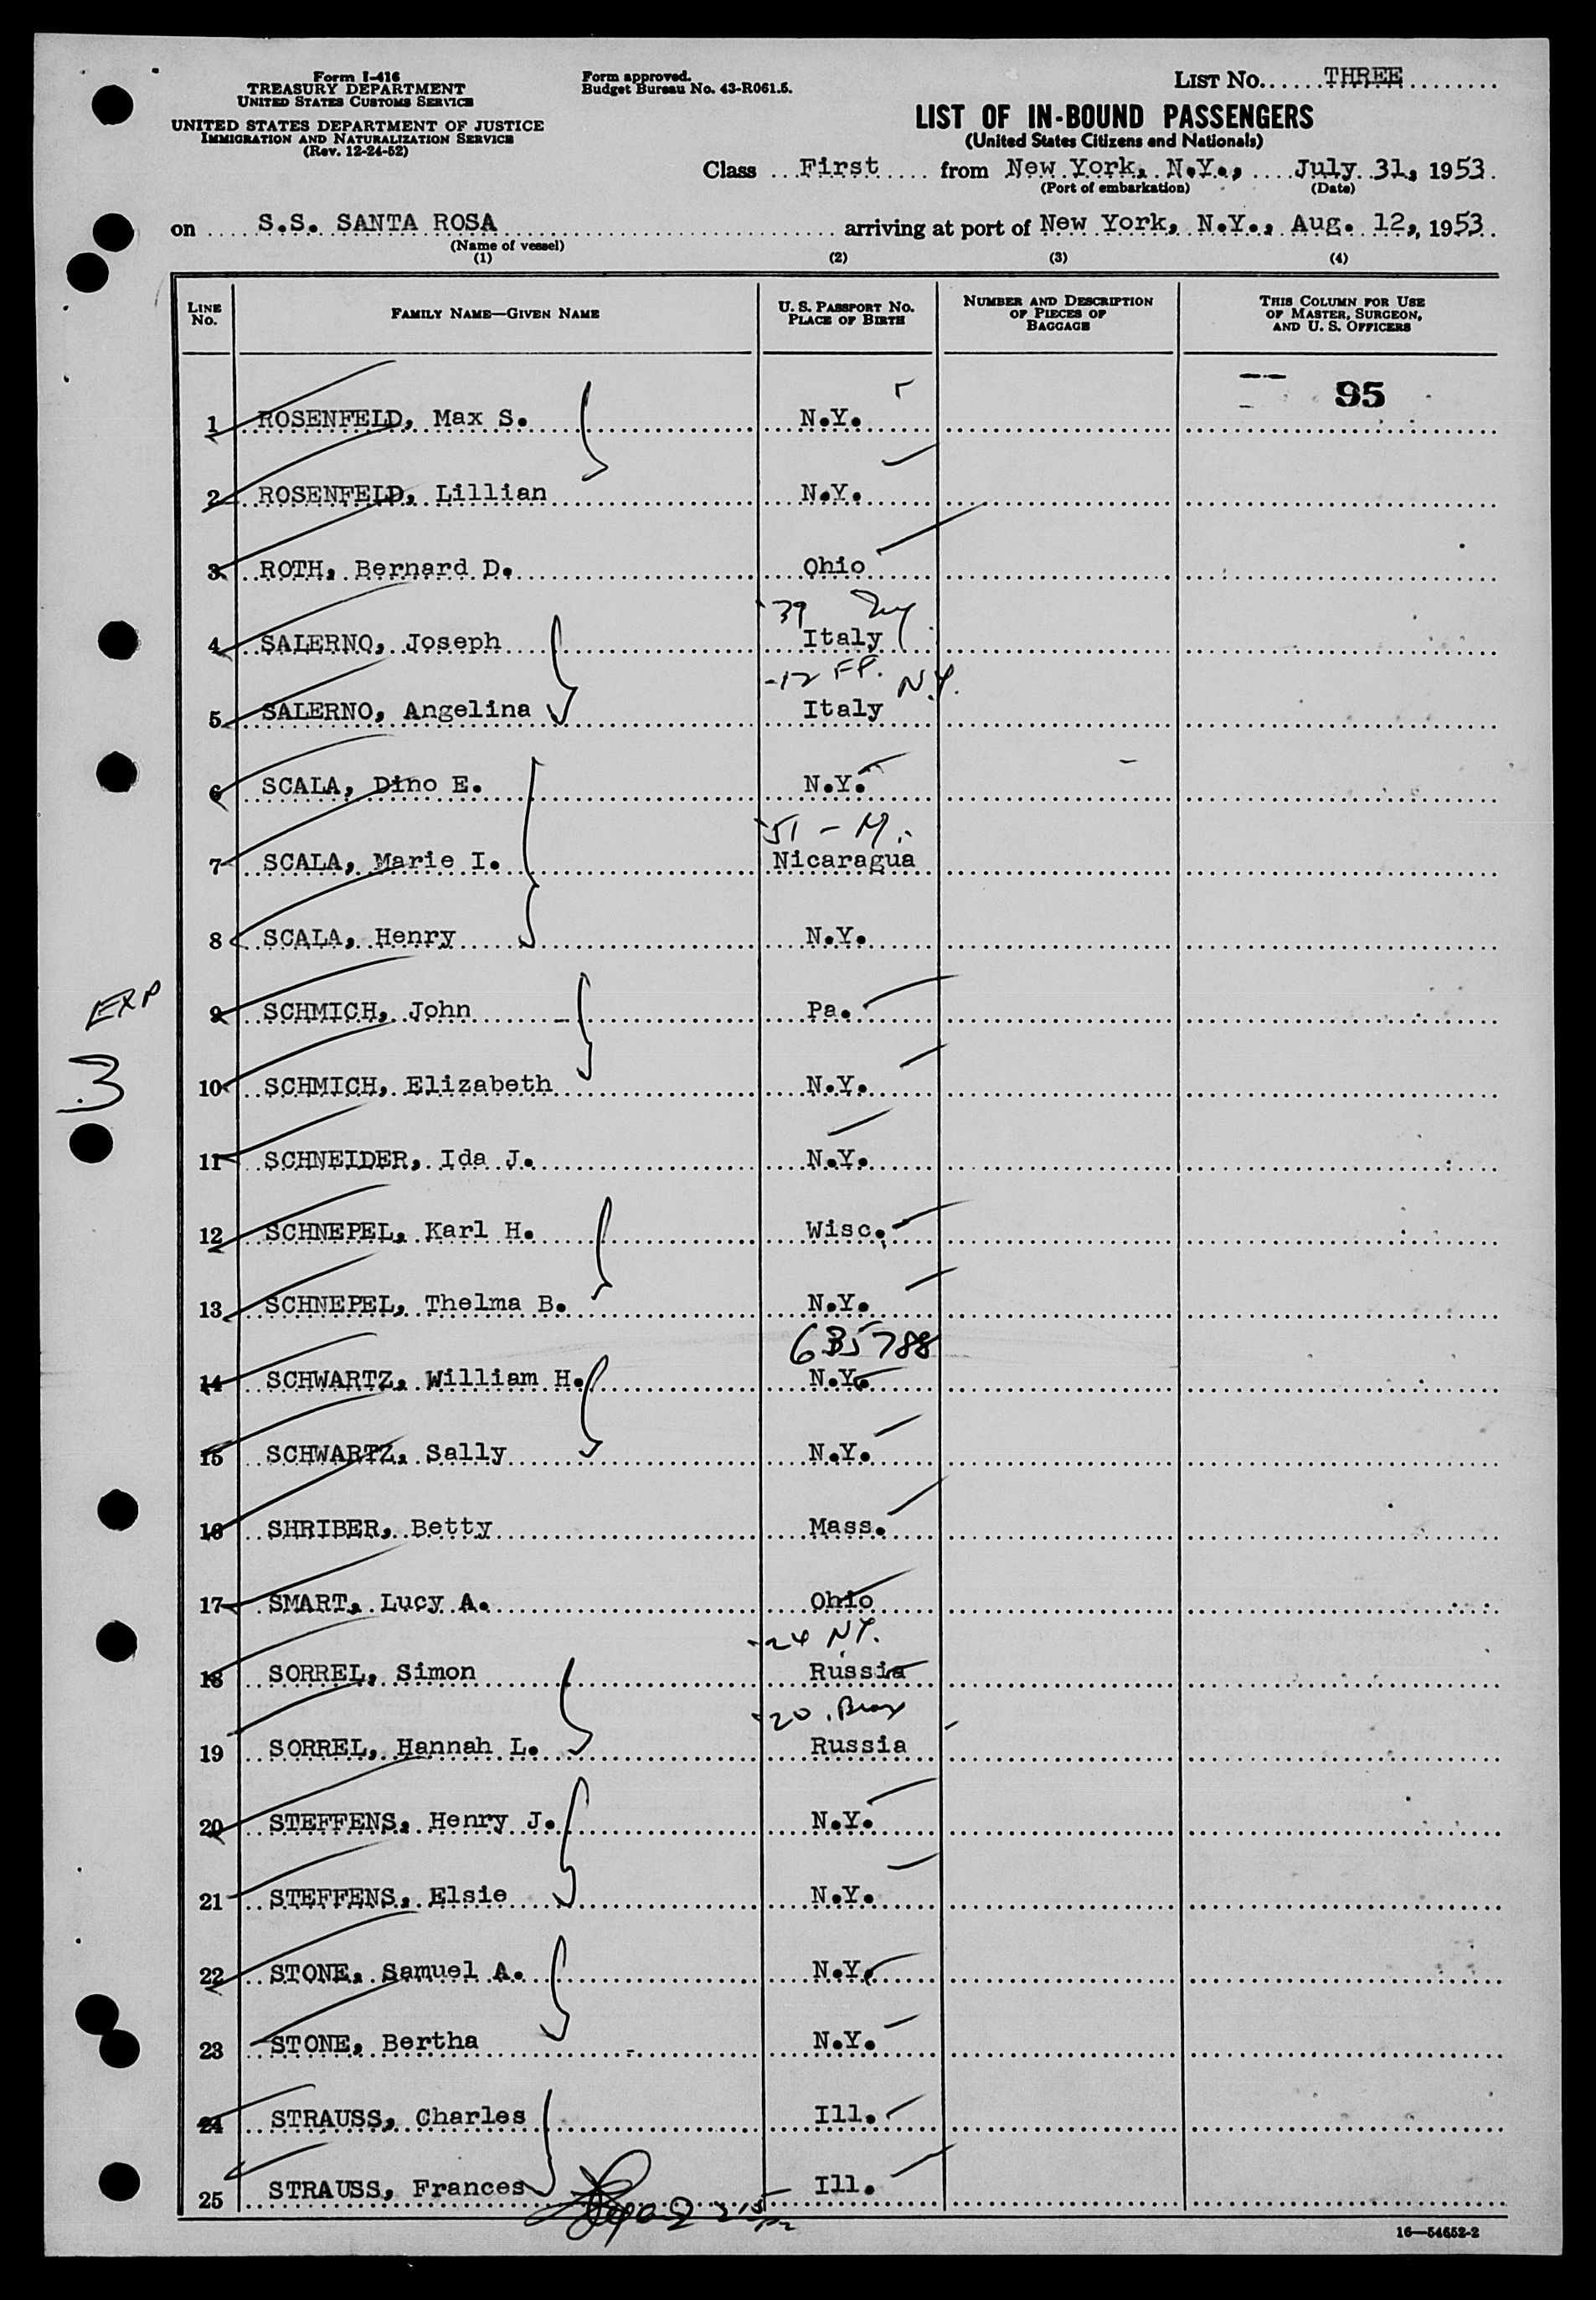 Form I-416
TREASURY DEPARTMENT
UNITED STATES CUSTOMS SERVICE
UNITED STATES DEPARTMENT OF JUSTICE
IMMIGRATION AND NATURALIZATION SERVICE
(Rev. 12-24-52)
Form approved.
Budget Bureau No. 43-R061.5.
LIST NO. THREE
LIST OF IN-BOUND PASSENGERS
(United States Citizens and Nationals)
Class First from New York, N.Y., July 31, 1953
(Port of embarkation) (Date)
on S.S. SANTA ROSA arriving at port of New York, N.Y., Aug. 12, 1953
(Name of vessel)
(1) (2) (3) (4)
LINE NO. FAMILY NAME—GIVEN NAME U. S. PASSPORT NO. PLACE OF BIRTH NUMBER AND DESCRIPTION OF PIECES OF BAGGAGE THIS COLUMN FOR USE OF MASTER, SURGEON, AND U. S. OFFICERS
95
1 ROSENFELD, Max S. N.Y.
2 ROSENFELD, Lillian N.Y.
3 ROTH, Bernard D. Ohio
'39
4 SALERNO, Joseph Italy
-12 FP. N.Y.
5 SALERNO, Angelina Italy
6 SCALA, Dino E. N.Y.
'51 - M.
7 SCALA, Marie I. Nicaragua
8 SCALA, Henry N.Y.
EXP
9 SCHMICH, John Pa.
3
10 SCHMICH, Elizabeth N.Y.
11 SCHNEIDER, Ida J. N.Y.
12 SCHNEPEL, Karl H. Wisc.
13 SCHNEPEL, Thelma B. N.Y.
635788
14 SCHWARTZ, William H. N.Y.
15 SCHWARTZ, Sally N.Y.
16 SHRIBER, Betty Mass.
17 SMART, Lucy A. Ohio
-24 N.Y.
18 SORREL, Simon Russia
-20
19 SORREL, Hannah L. Russia
20 STEFFENS, Henry J. N.Y.
21 STEFFENS, Elsie N.Y.
22 STONE, Samuel A. N.Y.
23 STONE, Bertha N.Y.
24 STRAUSS, Charles Ill.
25 STRAUSS, Frances Ill.
16—54652-2